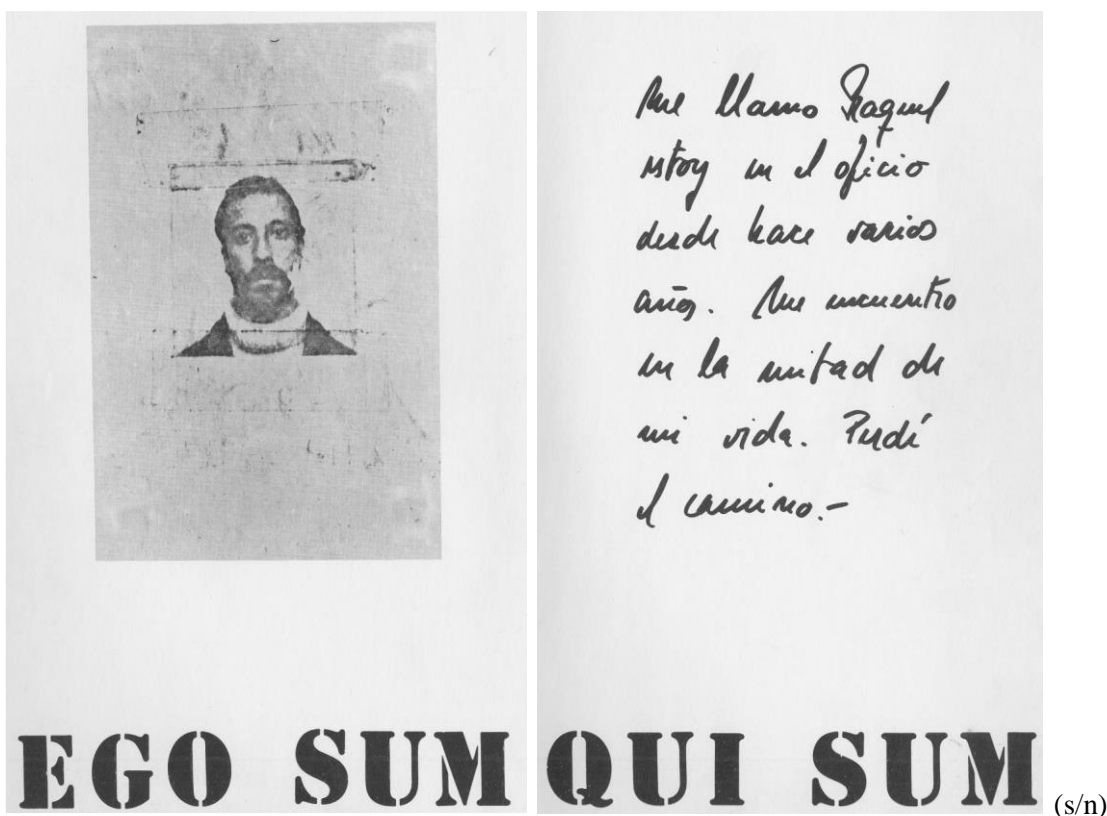 Me llamo Raquel
estoy en el oficio
desde hace varios
años. Me encuentro
en la mitad de
mi vida. Perdí
el camino.-
EGO SUM QUI SUM
(s/n)